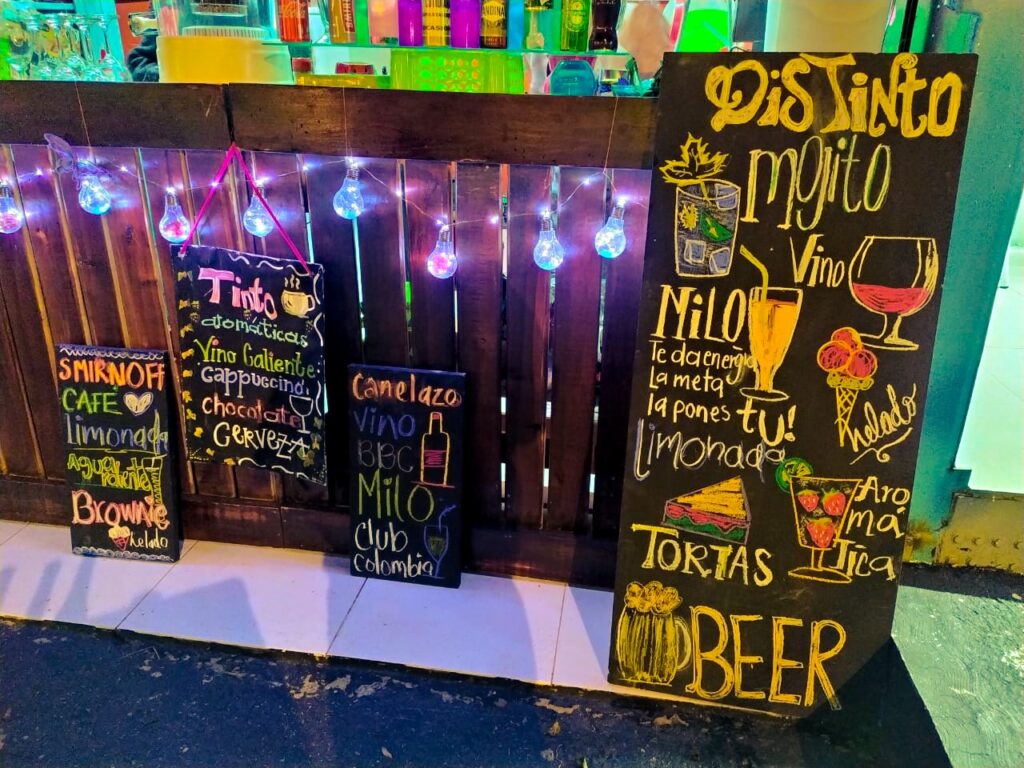 SMIRNOFF
CAFE
Limonada
Aguardiente
BROWNie
Helado
Tinto
aromáticas
Vino Caliente
cappuccino
chocolate
CerveZZA
canelazo
vino
BBC
Milo
Club
Colombia
DiSTinto
Mojito
Vino
NiLO
Te da energia
La meta
la pones
Tu!
Helado
Limonada
TORTAS
Aro
má
Tica
BEER